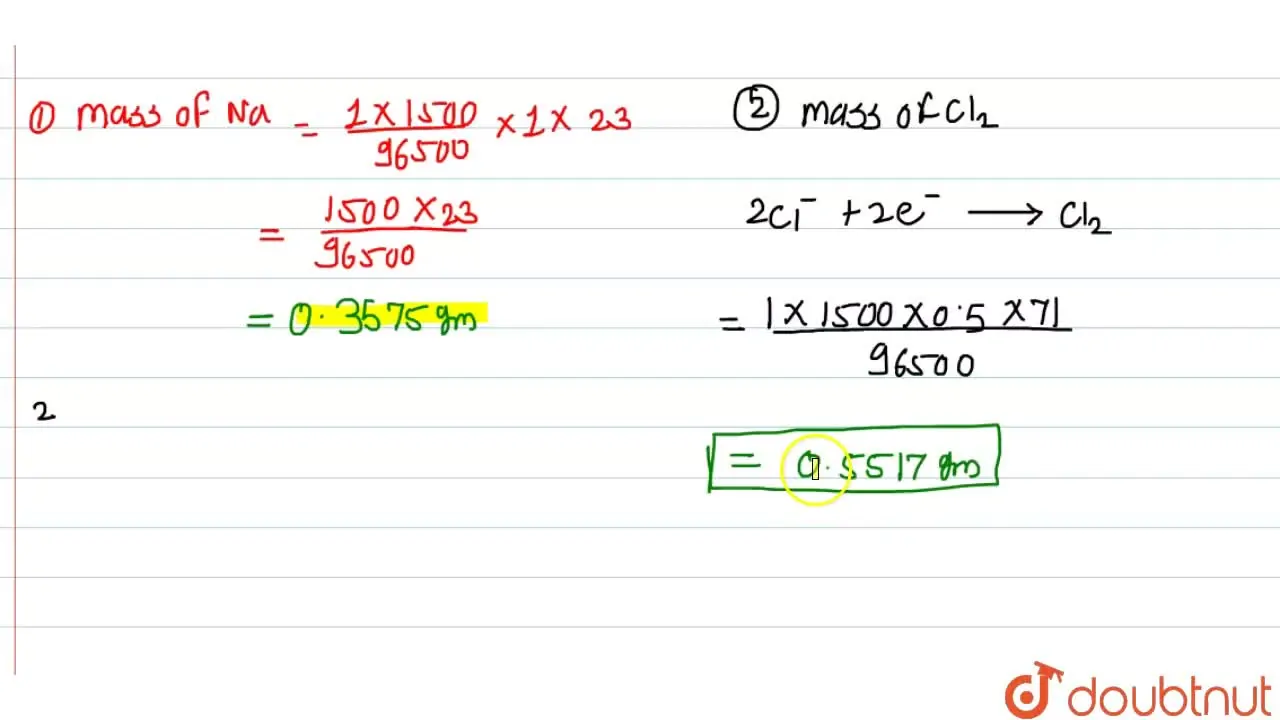 ① Mass of Na = 1 × 1500 / 96500 × 1 × 23
= 1500 × 23 / 96500
= 0.3575 gm
2
② Mass of Cl₂
2Cl⁻ + 2e⁻ ⟶ Cl₂
= 1 × 1500 × 0.5 × 71 / 96500
= 0.5517 gm
doubtnut